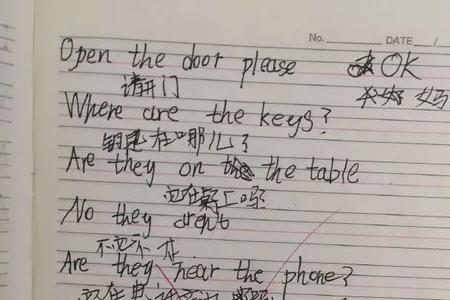 No. DATE /
Open the door please OK
请开门
Where are the keys? 妈
钥匙在哪儿?
Are they on the table
它在桌上吗
No they aren't
不它不在
Are they near the phone?